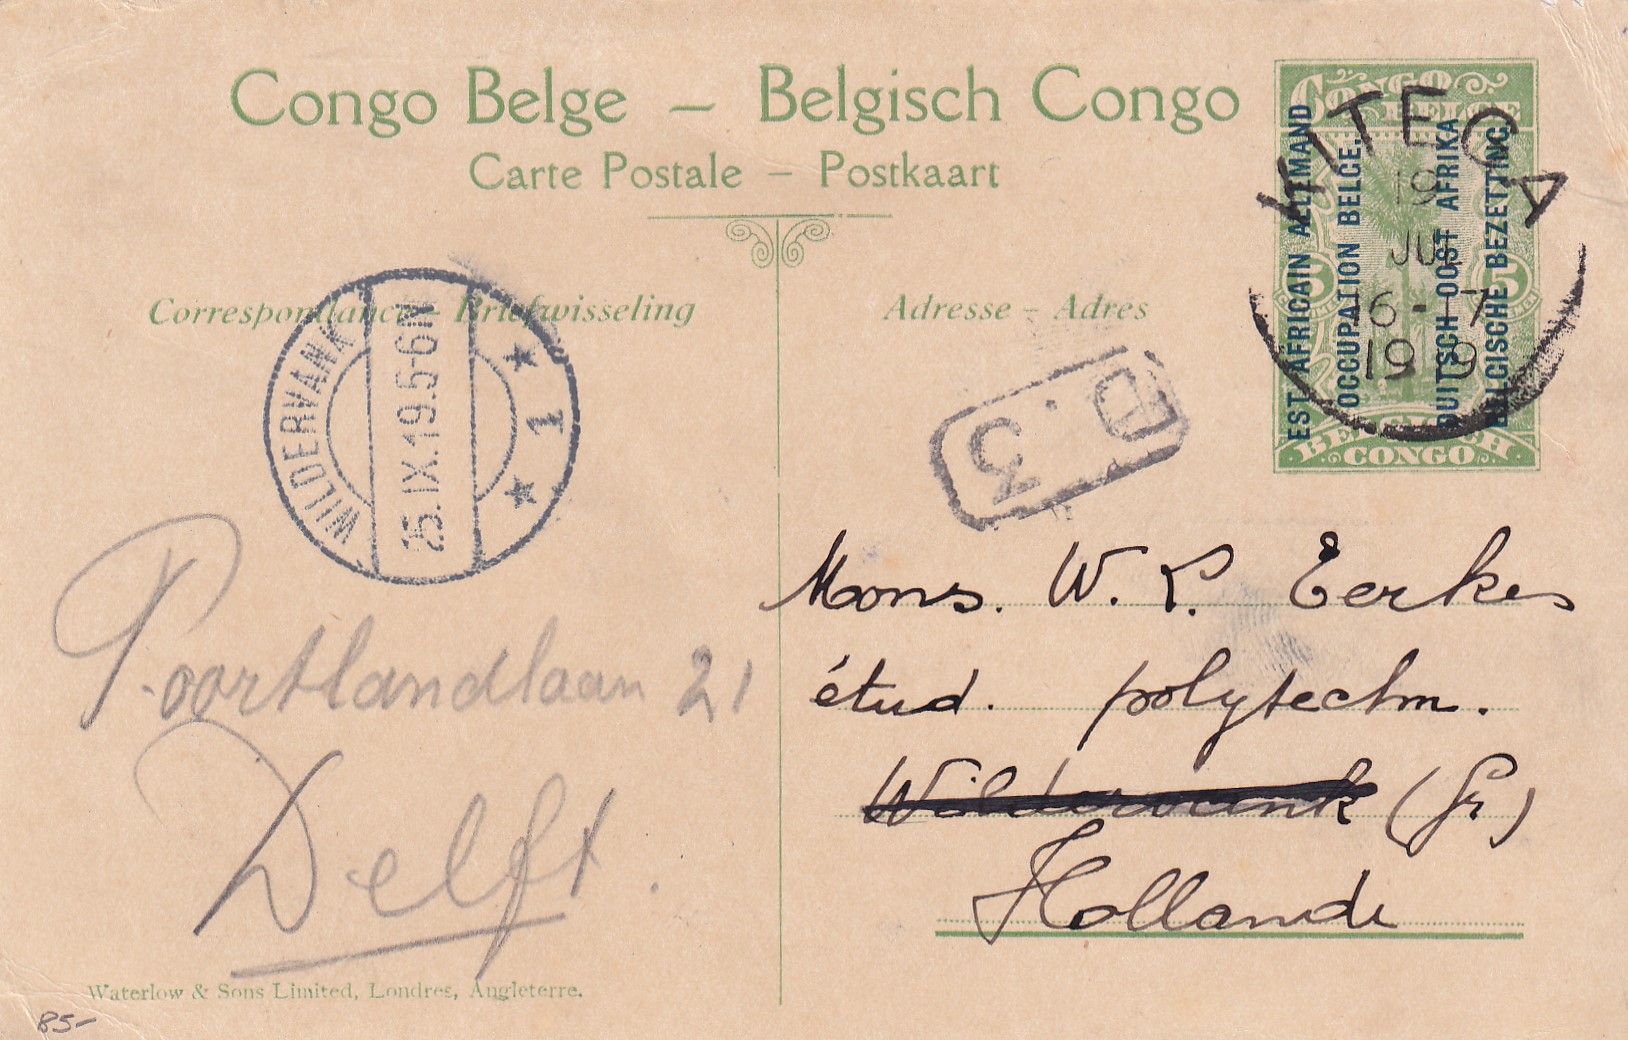 Congo Belge – Belgisch Congo
Carte Postale – Postkaart
Correspondance – Briefwisseling
Adresse – Adres
CONGO
BELGE
EST AFRICAIN ALLEMAND
OCCUPATION BELGE.
DUITSCH OOST AFRIKA
BELGISCHE BEZETTING.
5
5
BELGISCH
CONGO
KITEGA
19
JUL
16-17
1919
WILDERVANK
25.IX.19.5-6N
1
D.
3
Mons. W. P. Eerkes
étud. polytechn.
Wildervank (Gr)
Hollande
Poortlandlaan 21
Delft.
Waterlow & Sons Limited, Londres, Angleterre.
85-